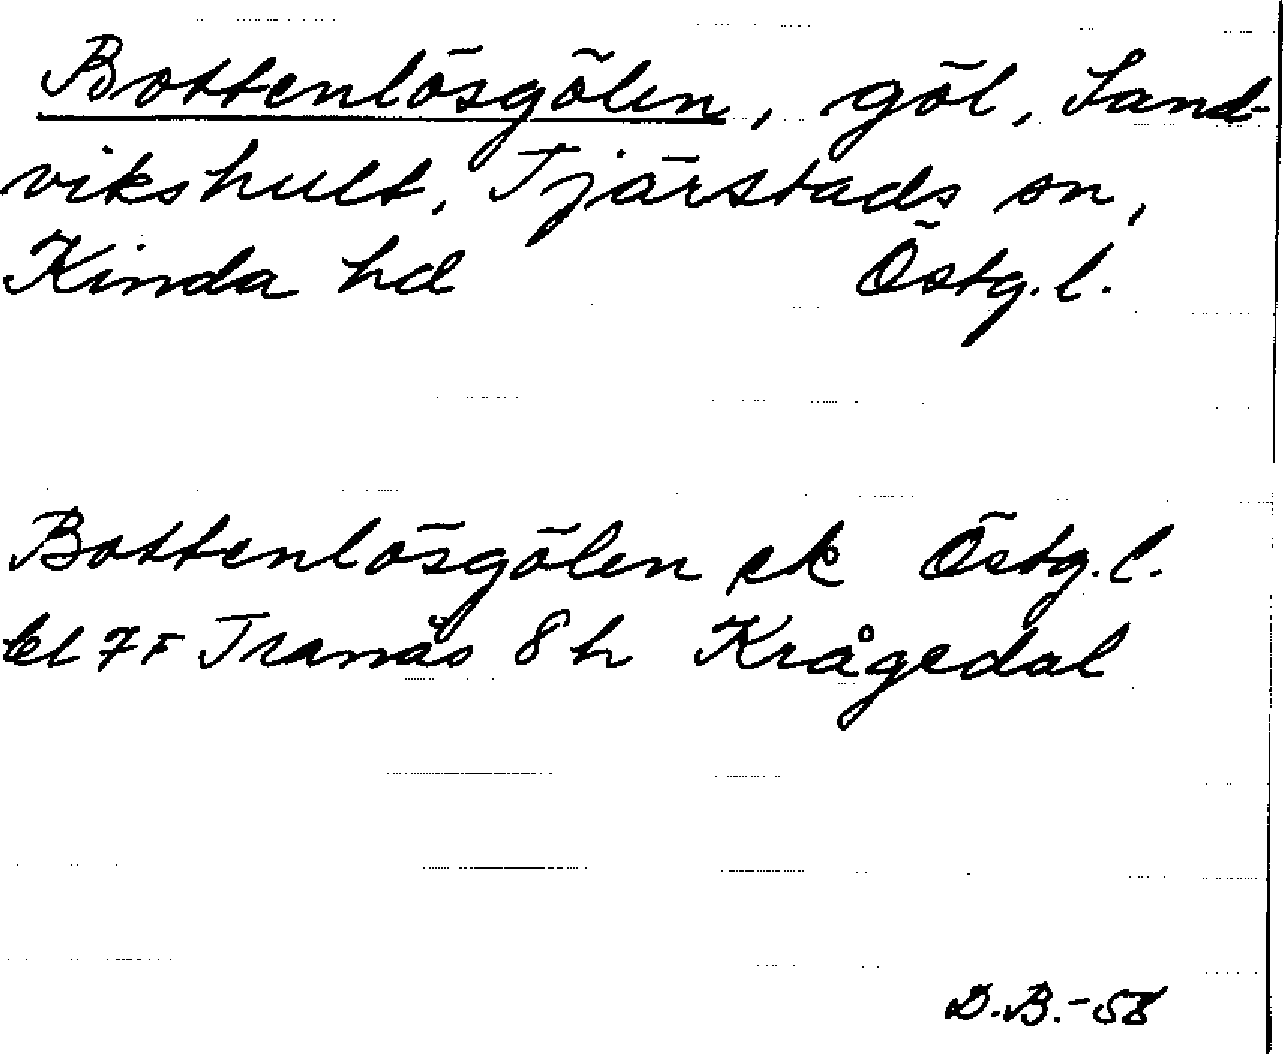 Bottenlösgölen, göl, Sand-
vikshult, Tjärstads sn,
Kinda hd Östg. l.
Bottenlösgölen ek Östg. l.
bl 7F Tranås 8 h Krågedal
D.B.-58